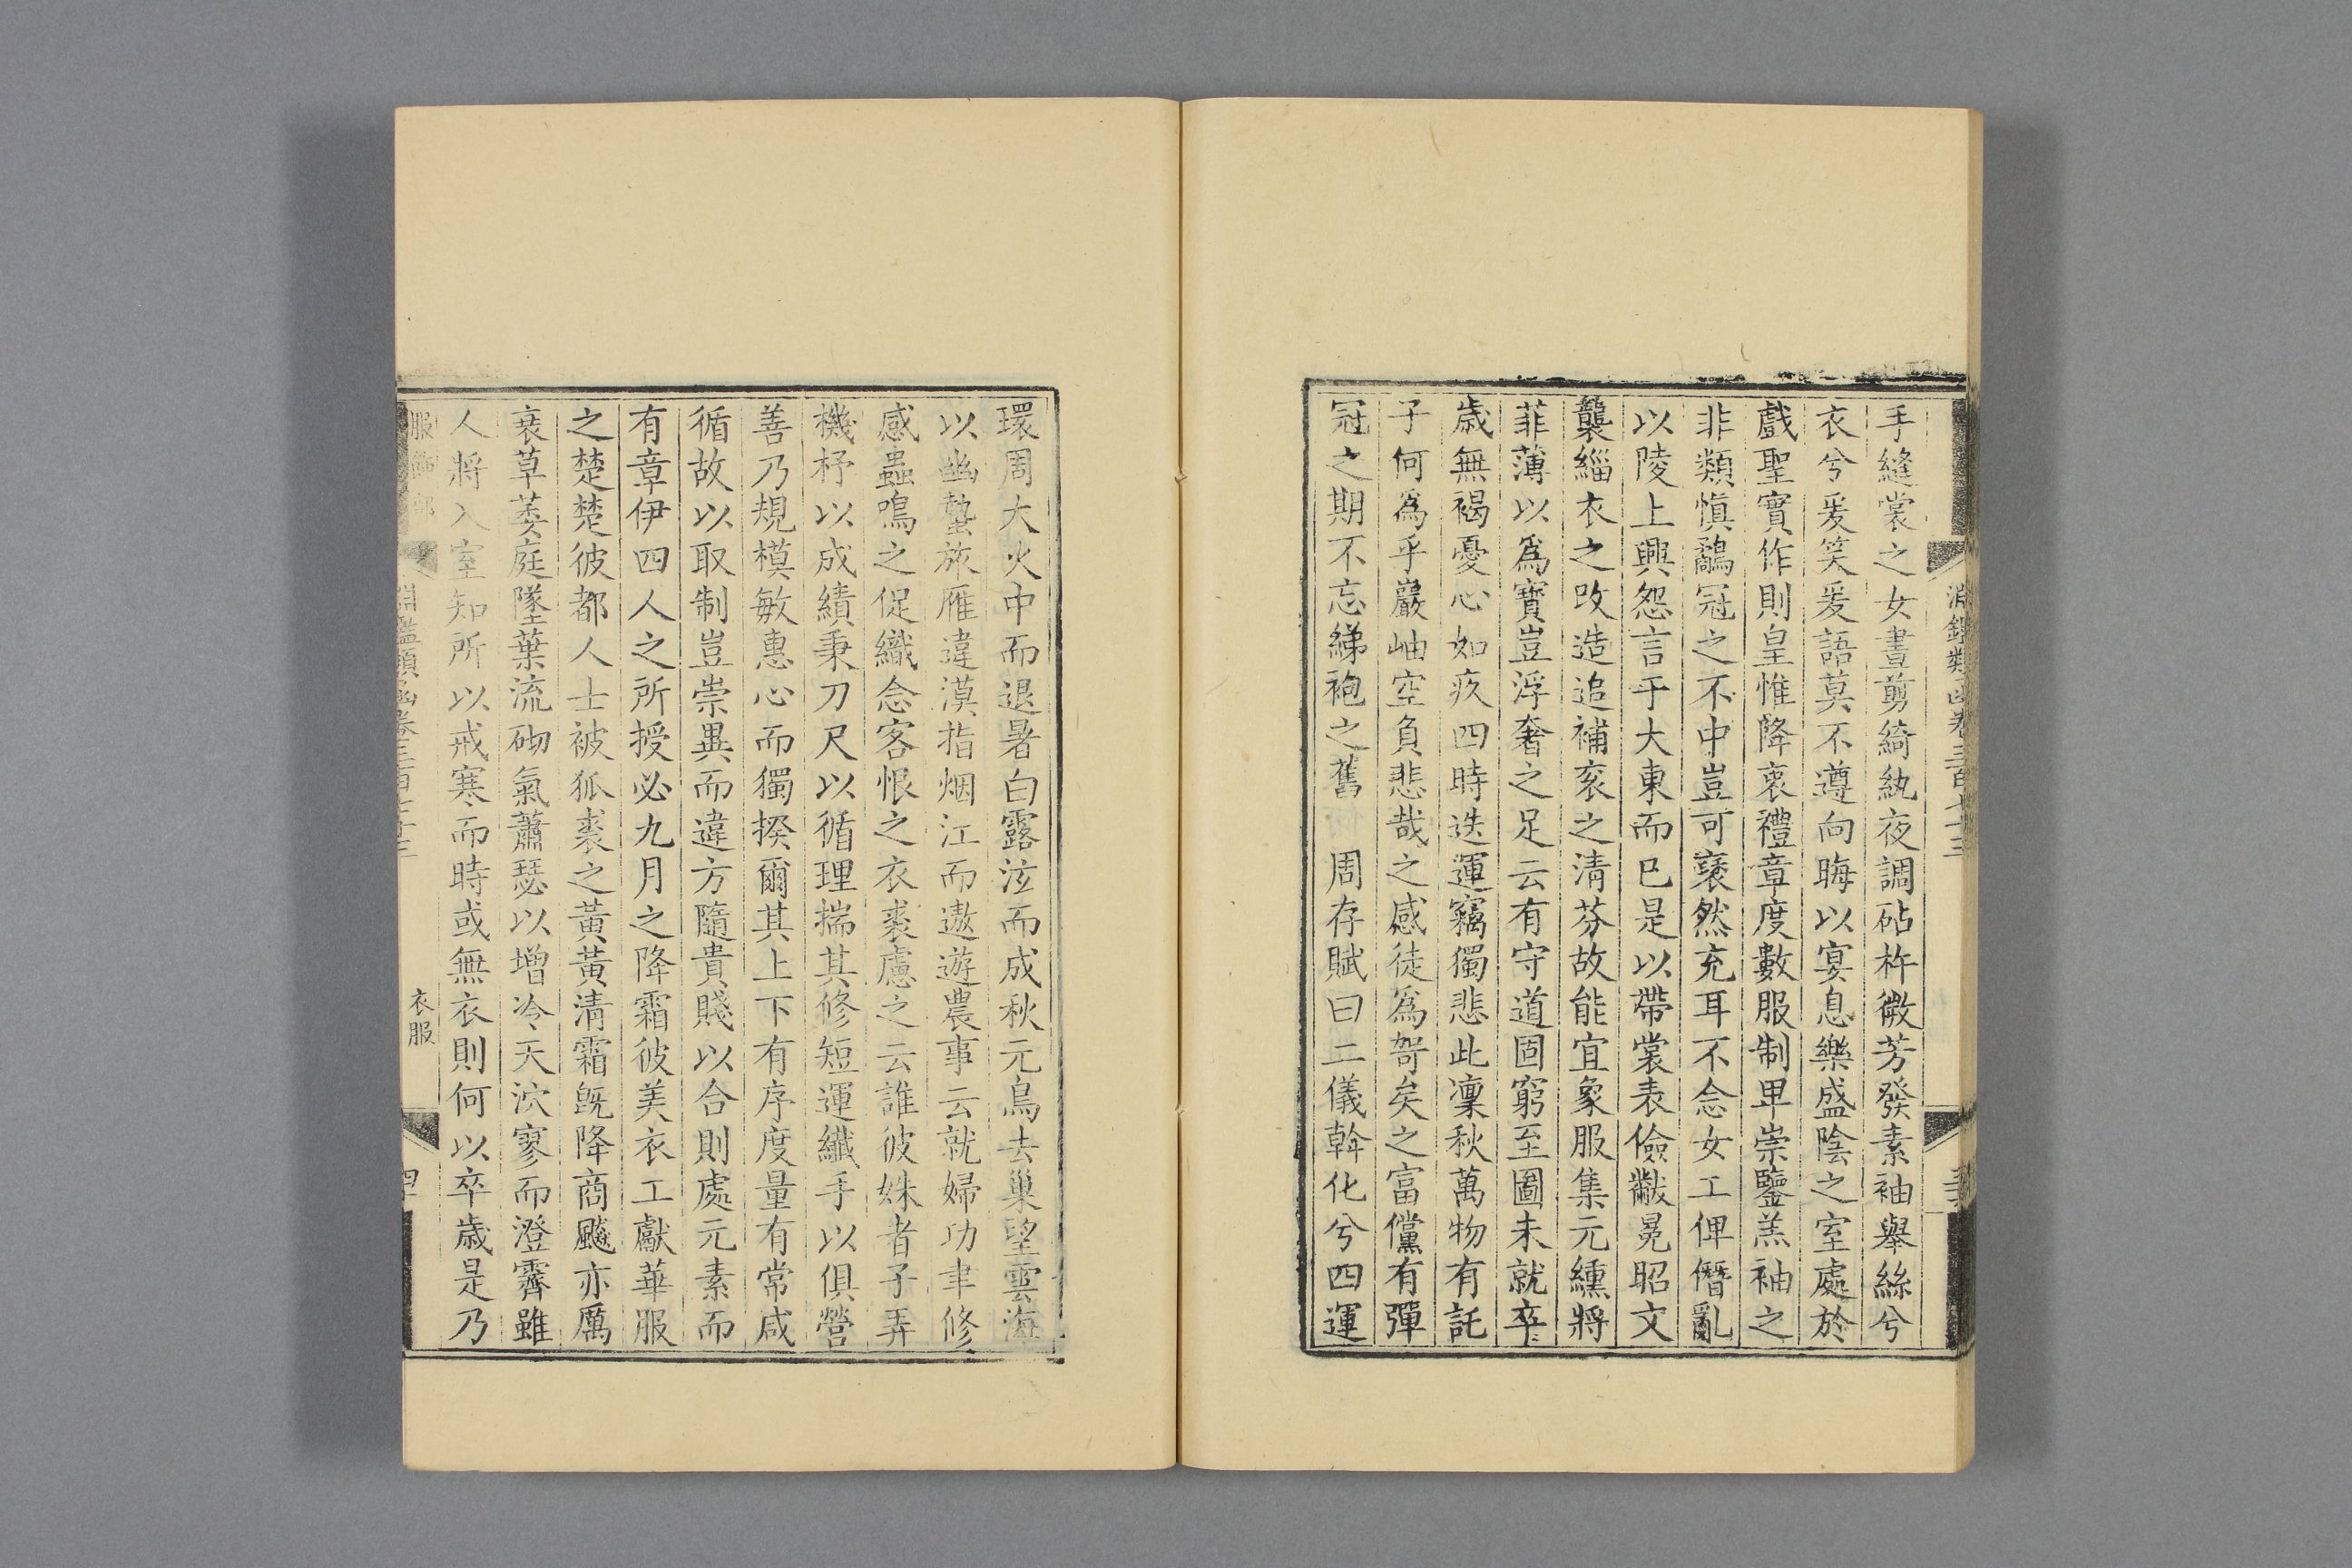 淵鑑類函卷三百七十三
手縫裳之女晝剪綺紈夜調砧杵微芳發素袖舉絲兮
衣兮爰笑爰語莫不遵向晦以宴息樂盛陰之室處於
戲聖實作則皇惟降衷禮章度數服制卑崇鑒羔袖之
非類愼鷸冠之不中豈可襃然充耳不念女工俾僭亂
以陵上興怨言于大東而已是以帶裳表儉黻冕昭文
襲緇衣之攺造追補衮之清芬故能宜象服集元纁將
菲薄以爲寶豈浮奢之足云有守道固窮至圖未就卒
歲無褐憂心如疚四時迭運竊獨悲此凜秋萬物有託
子何爲乎巖岫空負悲哉之感徒爲哿矣之富儻有彈
冠之期不忘綈袍之舊 周存賦曰二儀斡化兮四運
環周大火中而退暑白露泫而成秋元鳥去巢望雲海
以幽蟄旅雁違漠指烟江而遨遊農事云就婦功聿修
感蟲鳴之促織念客恨之衣裘慮之云誰彼姝者子弄
機杼以成績秉刀尺以循理揣其修短運纖手以俱營
善乃規模敏惠心而獨揆爾其上下有序度量有常咸
循故以取制豈崇異而違方隨貴賤以合則處元素而
有章伊四人之所授必九月之降霜彼美衣工獻華服
之楚楚彼都人士被狐裘之黃黃清霜旣降商飈亦厲
衰草萎庭墜葉流砌氣蕭瑟以增冷天泬寥而澄霽雖
人將入室知所以戒寒而時或無衣則何以卒歲是乃
服飾部 淵鑑類函卷三百七十三 衣服